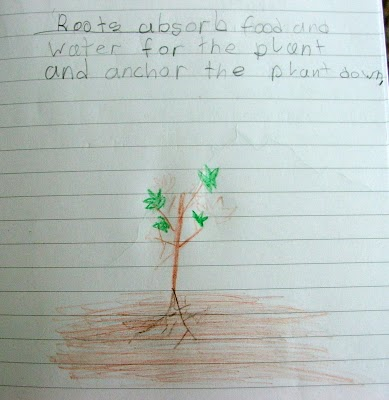 Roots absorb food and
water for the plant
and anchor the plant down,